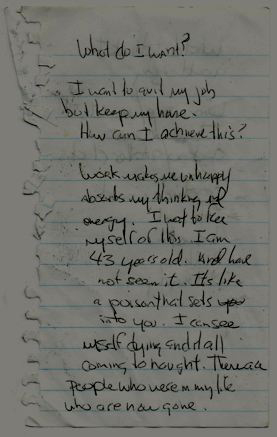 What do I want?
I want to quit my job
but keep my home.
How can I achieve this?
Work makes me unhappy
absorbs my thinking and
energy. I want to free
myself of this. I am
43 years old. And have
not seen it. It's like
a poison that sets
into you. I can see
myself dying and it all
coming to nought. There are
people who were in my life
who are now gone.